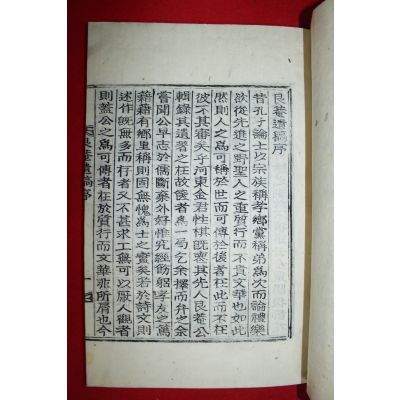 艮菴遺稿序
昔孔子論士以宗族稱孝鄉黨稱弟爲次而論禮樂
欲從先進之野聖人之重質行而不貴文華也如此
然則人之可稱於世而可傳於後者在此而不在
彼不其審矣乎河東金君性棋旣喪其先人艮菴公
輯錄其遺著之在故篋者爲一局乞余擇而弁之余
嘗聞公早志於儒斷棄外好惟究經飭躬孝友之篤
藉藉有鄉里稱則固無愧爲士之實矣若於詩文則
述作旣無多而行者又不甚求工無可以厭人觀者
則蓋公之爲可傳者在於質行而文華非所屑也今
艮菴遺稿序
一